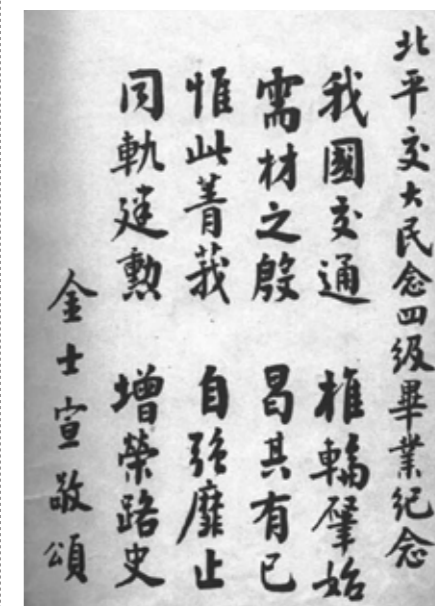 北平交大民念四級畢業紀念
我國交通 椎輪肇始
需材之殷 曷其有已
惟此菁莪 自強靡止
同軌建勲 增榮路史
金士宣敬頌